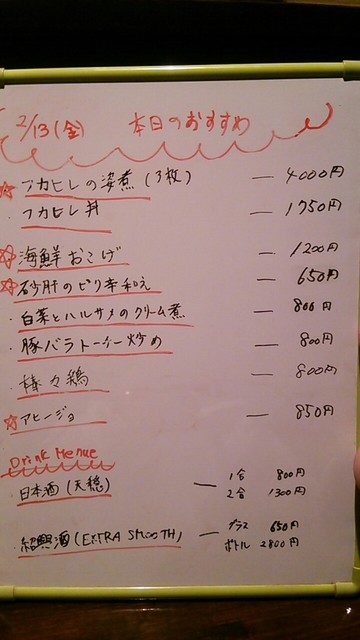 2/13(金) 本日のおすすめ
☆フカヒレの姿煮(3枚) — 4000円
・フカヒレ丼 — 1750円
☆海鮮おこげ — 1200円
☆砂肝のピリ辛和え — 650円
・白菜とハルサメのクリーム煮 — 800円
・豚バラトーチー炒め — 800円
・棒々鶏 — 800円
☆アヒージョ — 850円
Drink Menue
・日本酒(天穏) — 1合 800円
2合 1300円
・紹興酒(EXTRA SMOOTH) — グラス 650円
ボトル 2800円